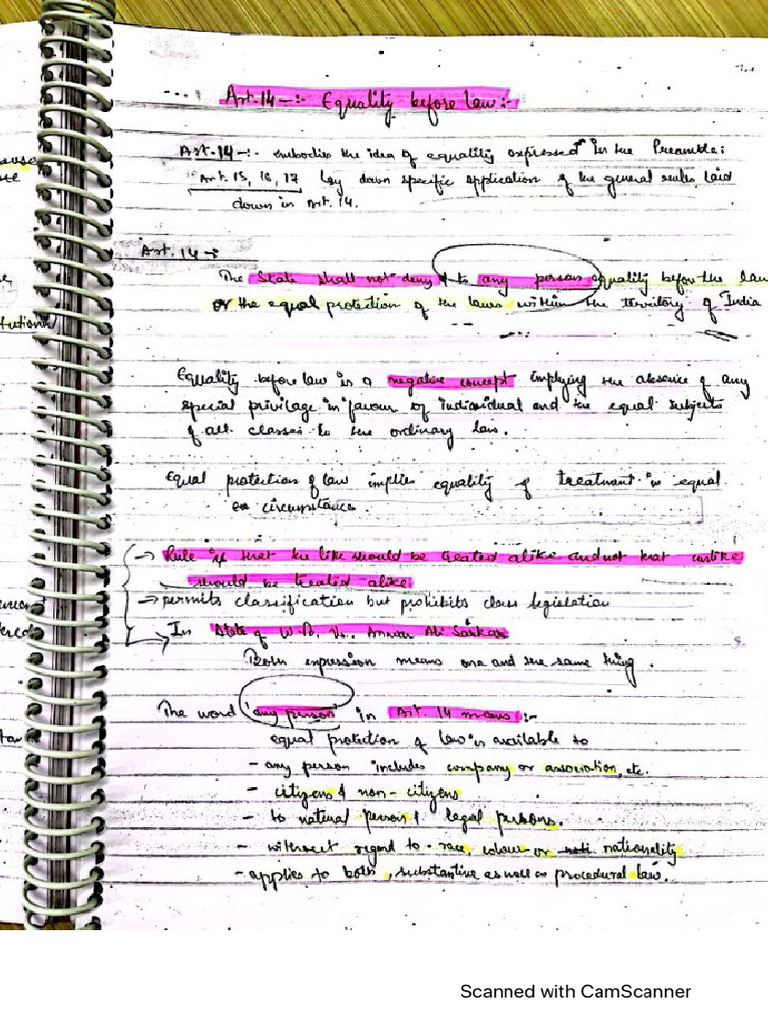 Art.14 -:- Equality before law:-
Art.14 -:- embodies the idea of equality expressed in the Preamble:
Art. 15, 16, 17 lay down specific application of the general rules laid
down in Art. 14.
Art. 14 -:
The State shall not deny to any person equality before the law
or the equal protection of the laws within the territory of India
Equality before law is a negative concept implying the absence of any
special privilage in favour of individual and the equal subjects
of all classes to the ordinary law.
Equal protection of law implies equality of treatment in equal
circumstance.
→ Rule is that the like should be treated alike and not that unlike
should be treated alike.
→ permits classification but prohibits class legislation
→ In State of W.B. Vs. Anwar Ali Sarkar
Both expression means one and the same thing.
The word 'any person' in Art. 14 means :-
equal protection of law is available to
- any person includes company or association, etc.
- citizens & non-citizens
- to natural person & legal persons.
- without regard to race, colour or nationality
- applies to both, substantive as well as procedural law.
Scanned with CamScanner